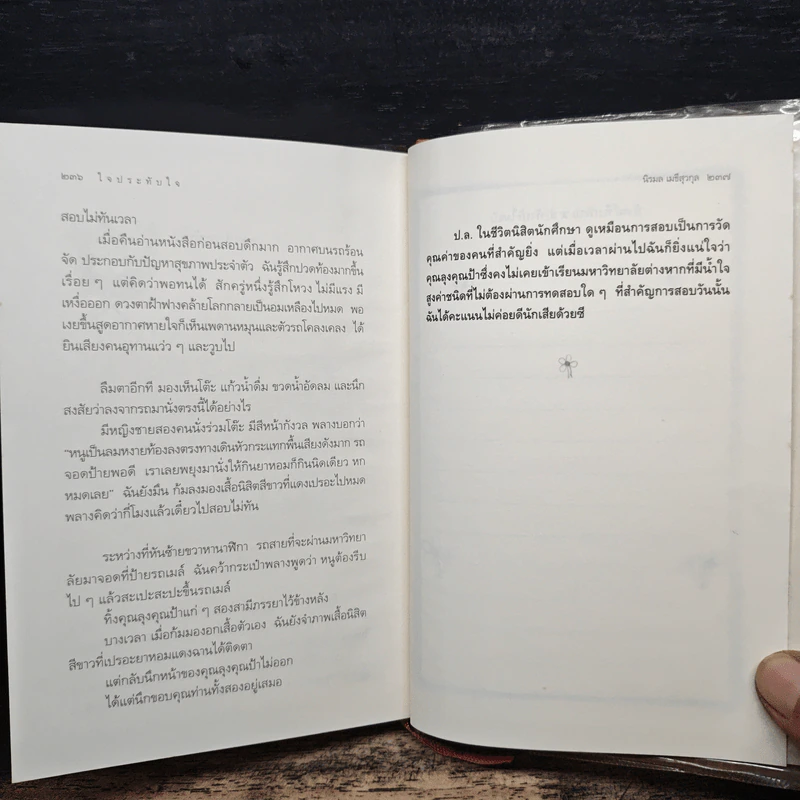 ๒๓๖ ใจประทับใจ
สอบไม่ทันเวลา
เมื่อคืนอ่านหนังสือก่อนสอบดึกมาก อากาศบนรถร้อน
จัด ประกอบกับปัญหาสุขภาพประจำตัว ฉันรู้สึกปวดท้องมากขึ้น
เรื่อย ๆ แต่คิดว่าพอทนได้ สักครู่หนึ่งรู้สึกโหวง ไม่มีแรง มี
เหงื่อออก ดวงตาฝ้าฟางคล้ายโลกกลายเป็นอมเหลืองไปหมด พอ
เงยขึ้นสูดอากาศหายใจก็เห็นเพดานหมุนและตัวรถโคลงเคลง ได้
ยินเสียงคนอุทานแว่ว ๆ และวูบไป
ลืมตาอีกที มองเห็นโต๊ะ แก้วน้ำดื่ม ขวดน้ำอัดลม และนึก
สงสัยว่าลงจากรถมานั่งตรงนี้ได้อย่างไร
มีหญิงชายสองคนนั่งร่วมโต๊ะ มีสีหน้ากังวล พลางบอกว่า
"หนูเป็นลมหงายท้องลงตรงทางเดินหัวกระแทกพื้นเสียงดังมาก รถ
จอดป้ายพอดี เราเลยพยุงมานั่งให้กินยาหอมก็กินนิดเดียว หก
หมดเลย" ฉันยังมึน ก้มลงมองเสื้อนิสิตสีขาวที่แดงเปรอะไปหมด
พลางคิดว่ากี่โมงแล้วเดี๋ยวไปสอบไม่ทัน
ระหว่างที่หันซ้ายขวาหานาฬิกา รถสายที่จะผ่านมหาวิทยา
ลัยมาจอดที่ป้ายรถเมล์ ฉันคว้ากระเป๋าพลางพูดว่า หนูต้องรีบ
ไป ๆ แล้วสะเปะสะปะขึ้นรถเมล์
ทิ้งคุณลุงคุณป้าแก่ ๆ สองสามีภรรยาไว้ข้างหลัง
บางเวลา เมื่อก้มมองอกเสื้อตัวเอง ฉันยังจำภาพเสื้อนิสิต
สีขาวที่เปรอะยาหอมแดงฉานได้ติดตา
แต่กลับนึกหน้าของคุณลุงคุณป้าไม่ออก
ได้แต่นึกขอบคุณท่านทั้งสองอยู่เสมอ
นิรมล เมธีสุวกุล ๒๓๗
ป.ล. ในชีวิตนิสิตนักศึกษา ดูเหมือนการสอบเป็นการวัด
คุณค่าของคนที่สำคัญยิ่ง แต่เมื่อเวลาผ่านไปฉันก็ยิ่งแน่ใจว่า
คุณลุงคุณป้าซึ่งคงไม่เคยเข้าเรียนมหาวิทยาลัยต่างหากที่มีน้ำใจ
สูงค่าชนิดที่ไม่ต้องผ่านการทดสอบใด ๆ ที่สำคัญการสอบวันนั้น
ฉันได้คะแนนไม่ค่อยดีนักเสียด้วยซี